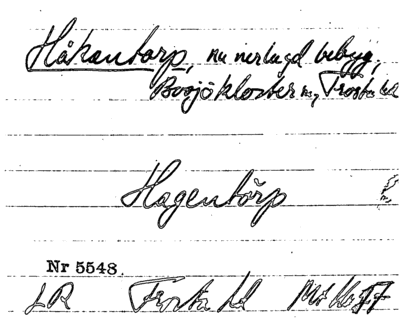 Håkantorp, nu nerlagd bebyg,
Bosjökloster sn, Frosta hd
Hagentorp
Nr 5548.
LR Frosta hd